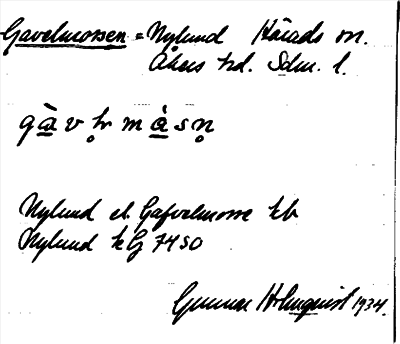 Gavelmossen = Nylund Härads sn.
Åkers hd. Sdm. l.
gàvḷmàsṇ
Nylund el. Gafvelmosse kb
Nylund kG 7450
Gunnar Holmquist 1934.